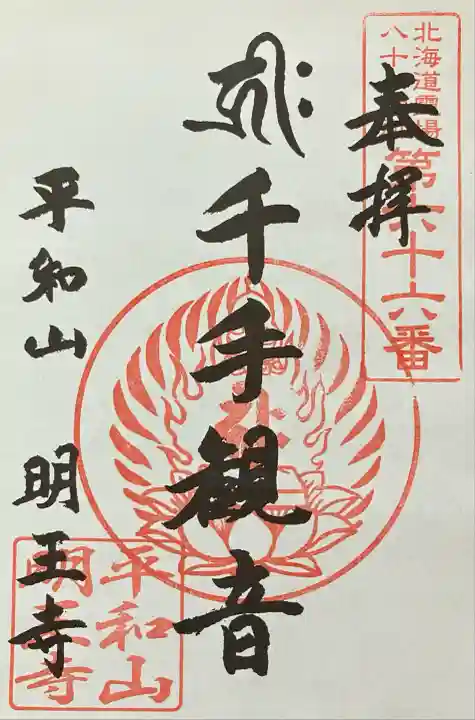 奉拝
北海道霊場
八十
第六十六番
千手観音
平和山 明王寺
平和山
明王寺